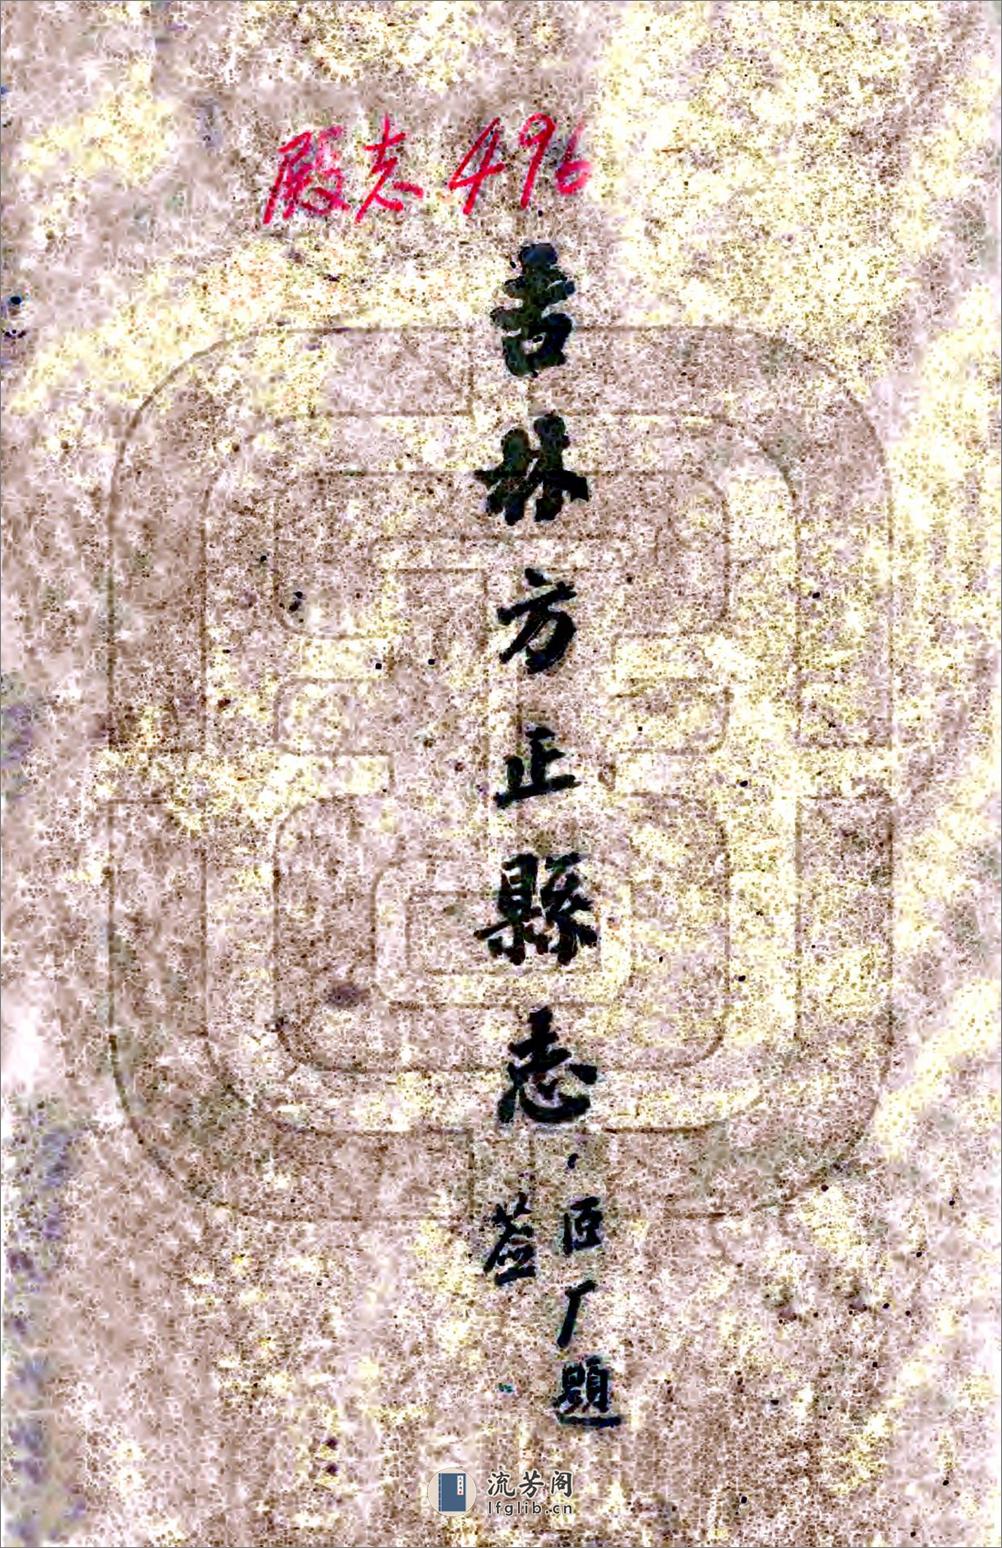 殿志496
吉林方正縣志
臣厂題
签
流芳阁
lfglib.cn